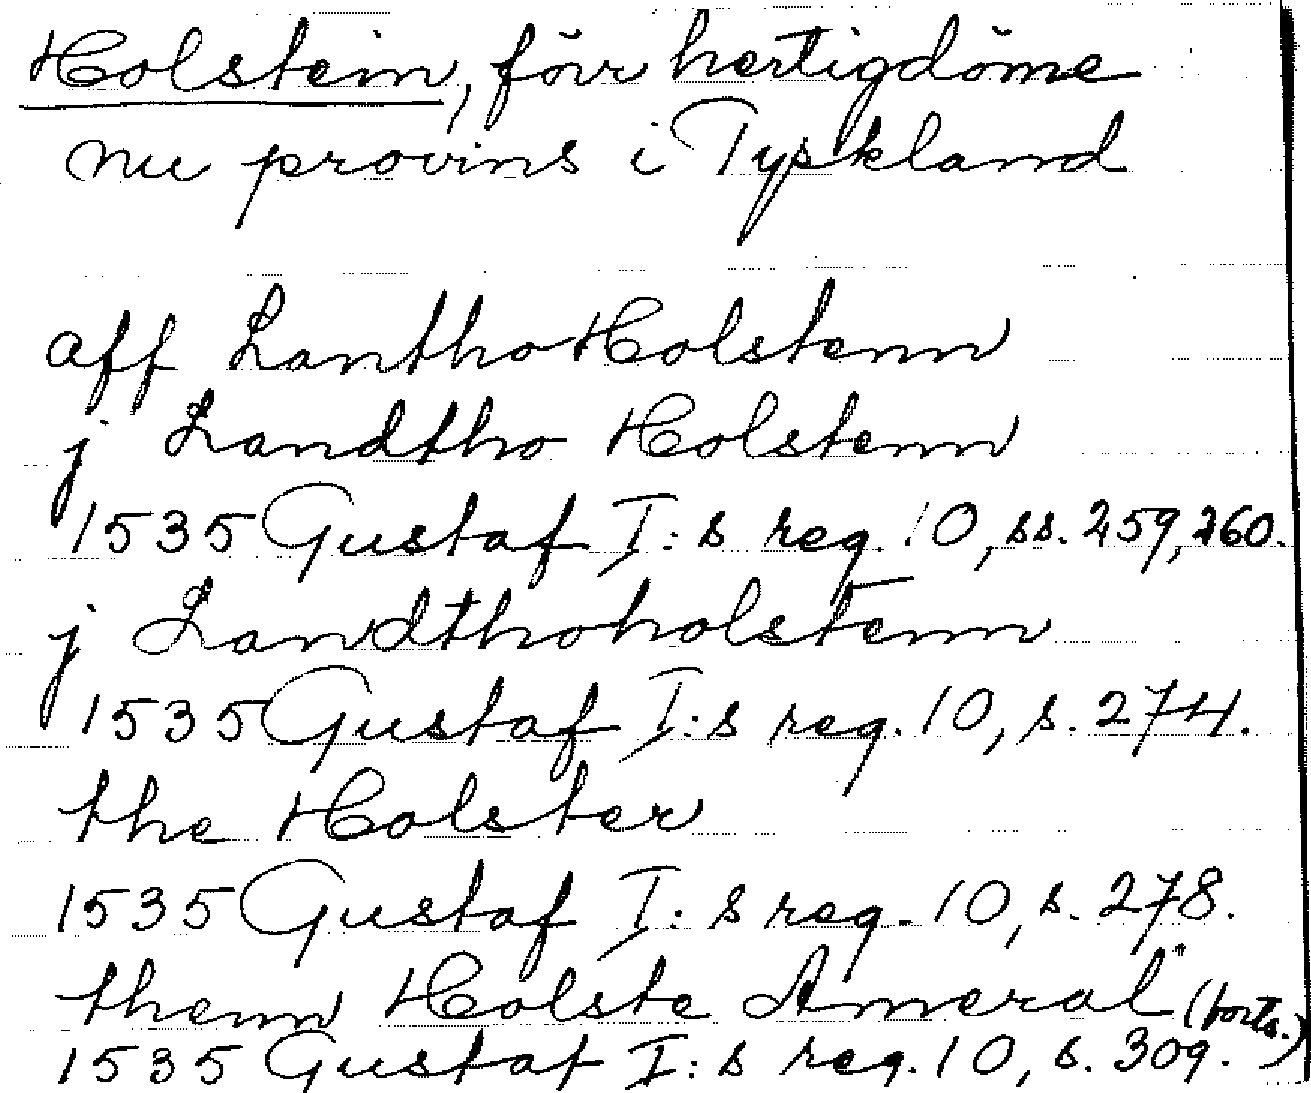 Holstein, förr hertigdöme
nu provins i Tyskland
aff Lantho Holstenn
j Landtho Holstenn
1535 Gustaf I:s reg. 10, ss. 259, 260.
j Landthoholstenn
1535 Gustaf I:s reg. 10, s. 274.
the Holster
1535 Gustaf I:s reg. 10, s. 278.
thenn Holste Ameral (forts.)
1535 Gustaf I:s reg. 10, s. 309.